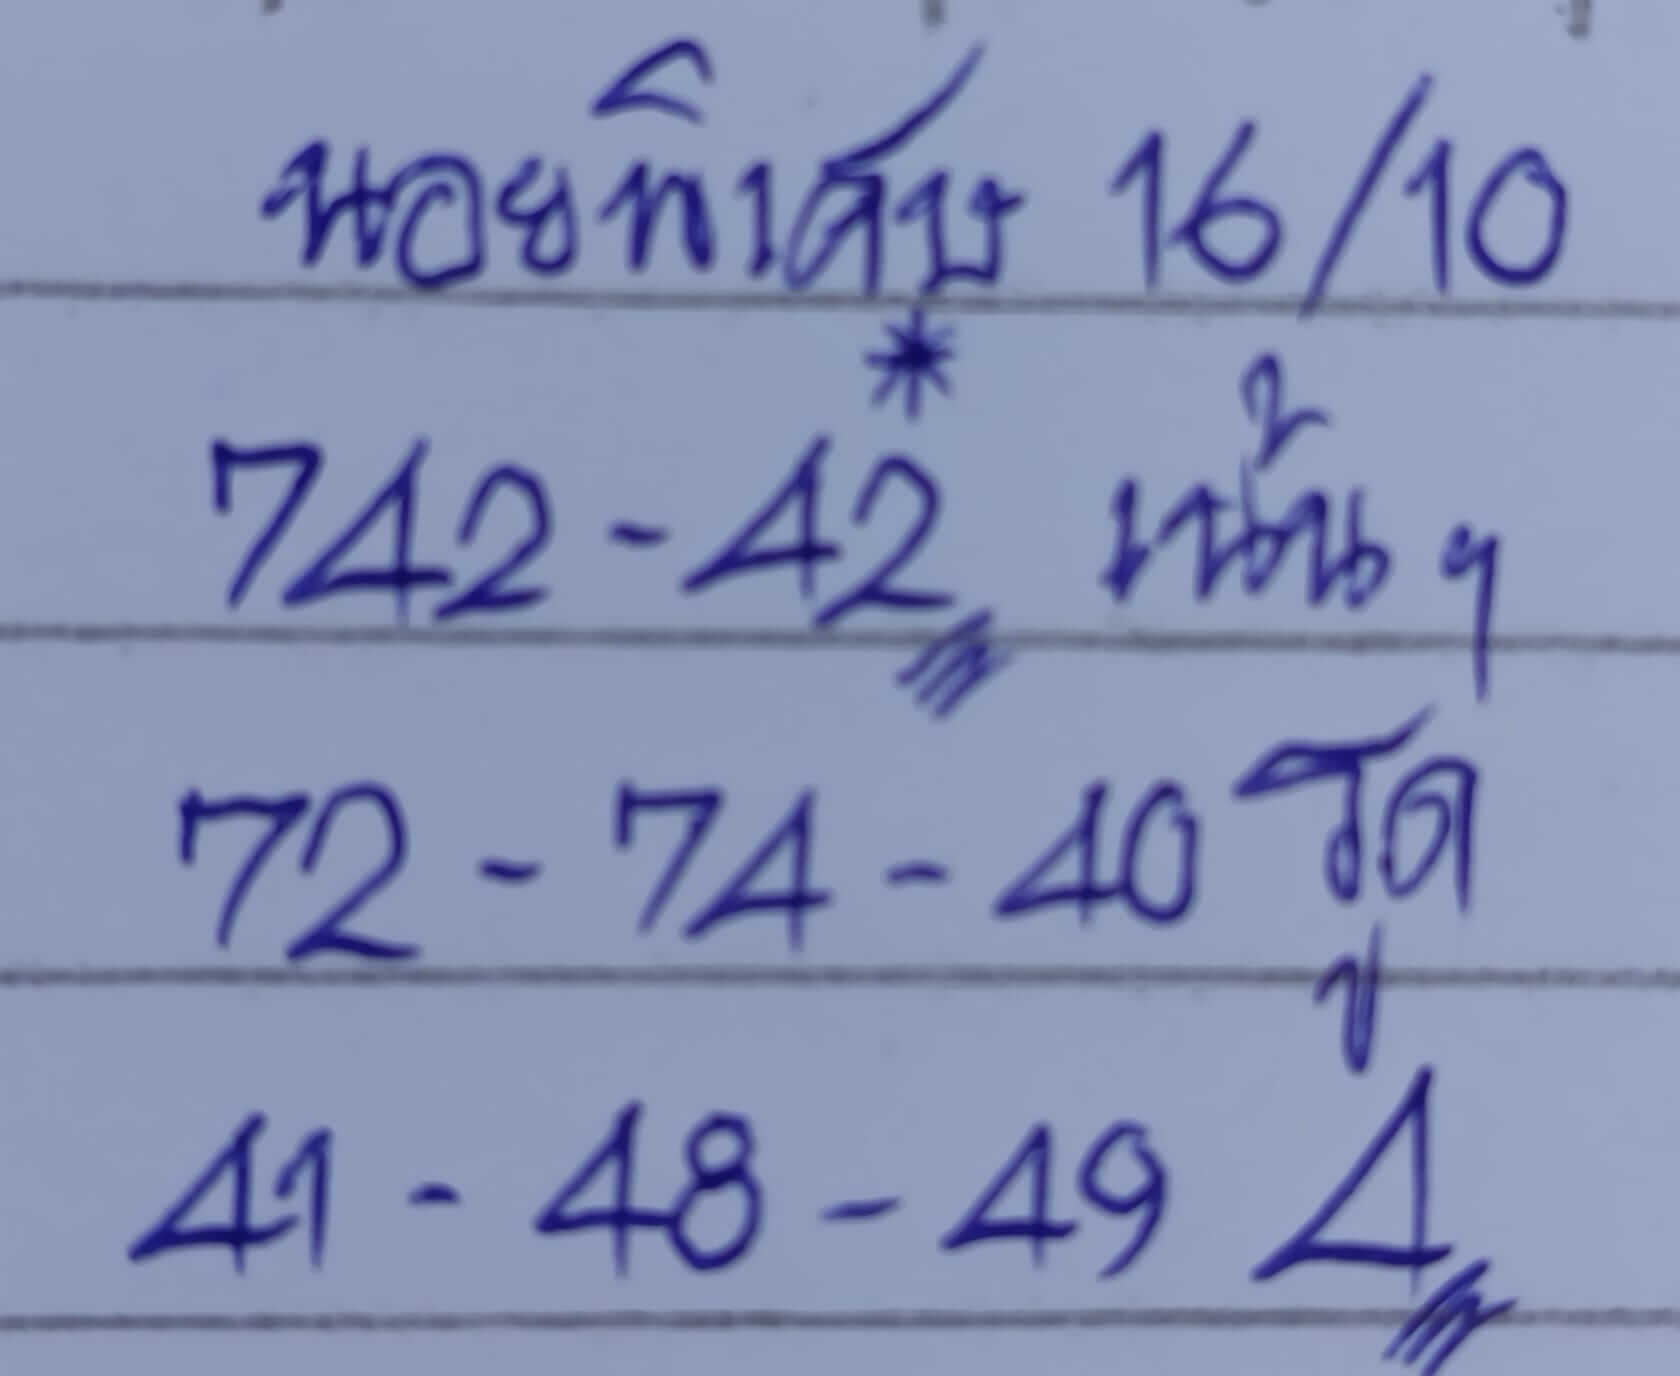 นอยพิเศษ 16/10
742 - 42 เน้นๆ
72 - 74 - 40 รูด
41 - 48 - 49 4